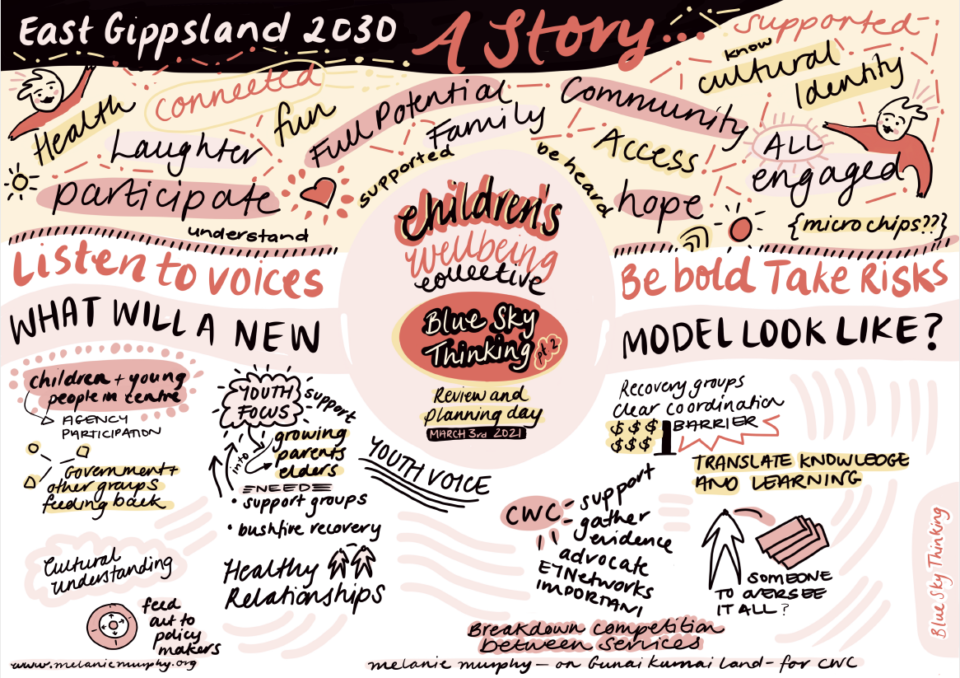 East Gippsland 2030
A Story...
supported
know
cultural
Identity
Health
connected
fun
Full Potential
Family
Community
Access
Laughter
ALL
engaged
participate
supported
be heard
hope
understand
{micro chips??}
children's
wellbeing
collective
Listen to voices
Be bold Take Risks
WHAT WILL A NEW
MODEL LOOK LIKE?
Blue Sky
Thinking
pt 2
Review and
planning day
MARCH 3rd 2021
children + young
people in centre
AGENCY
PARTICIPATION
Government +
other groups
feeding back
Cultural
understanding
feed
out to
policy
makers
YOUTH
FOCUS
support
into
growing
parents
elders
NEED
• support groups
• bushfire recovery
Healthy
Relationships
YOUTH VOICE
Recovery groups
clear coordination
$$$
$$$
BARRIER
TRANSLATE KNOWLEDGE
AND LEARNING
CWC
support
gather
evidence
advocate
E7Networks
IMPORTANT
SOMEONE
TO OVERSEE
IT ALL?
Breakdown competition
between services
Blue Sky Thinking
www.melaniemurphy.org
melanie murphy - on Gunai Kurnai land - for CWC